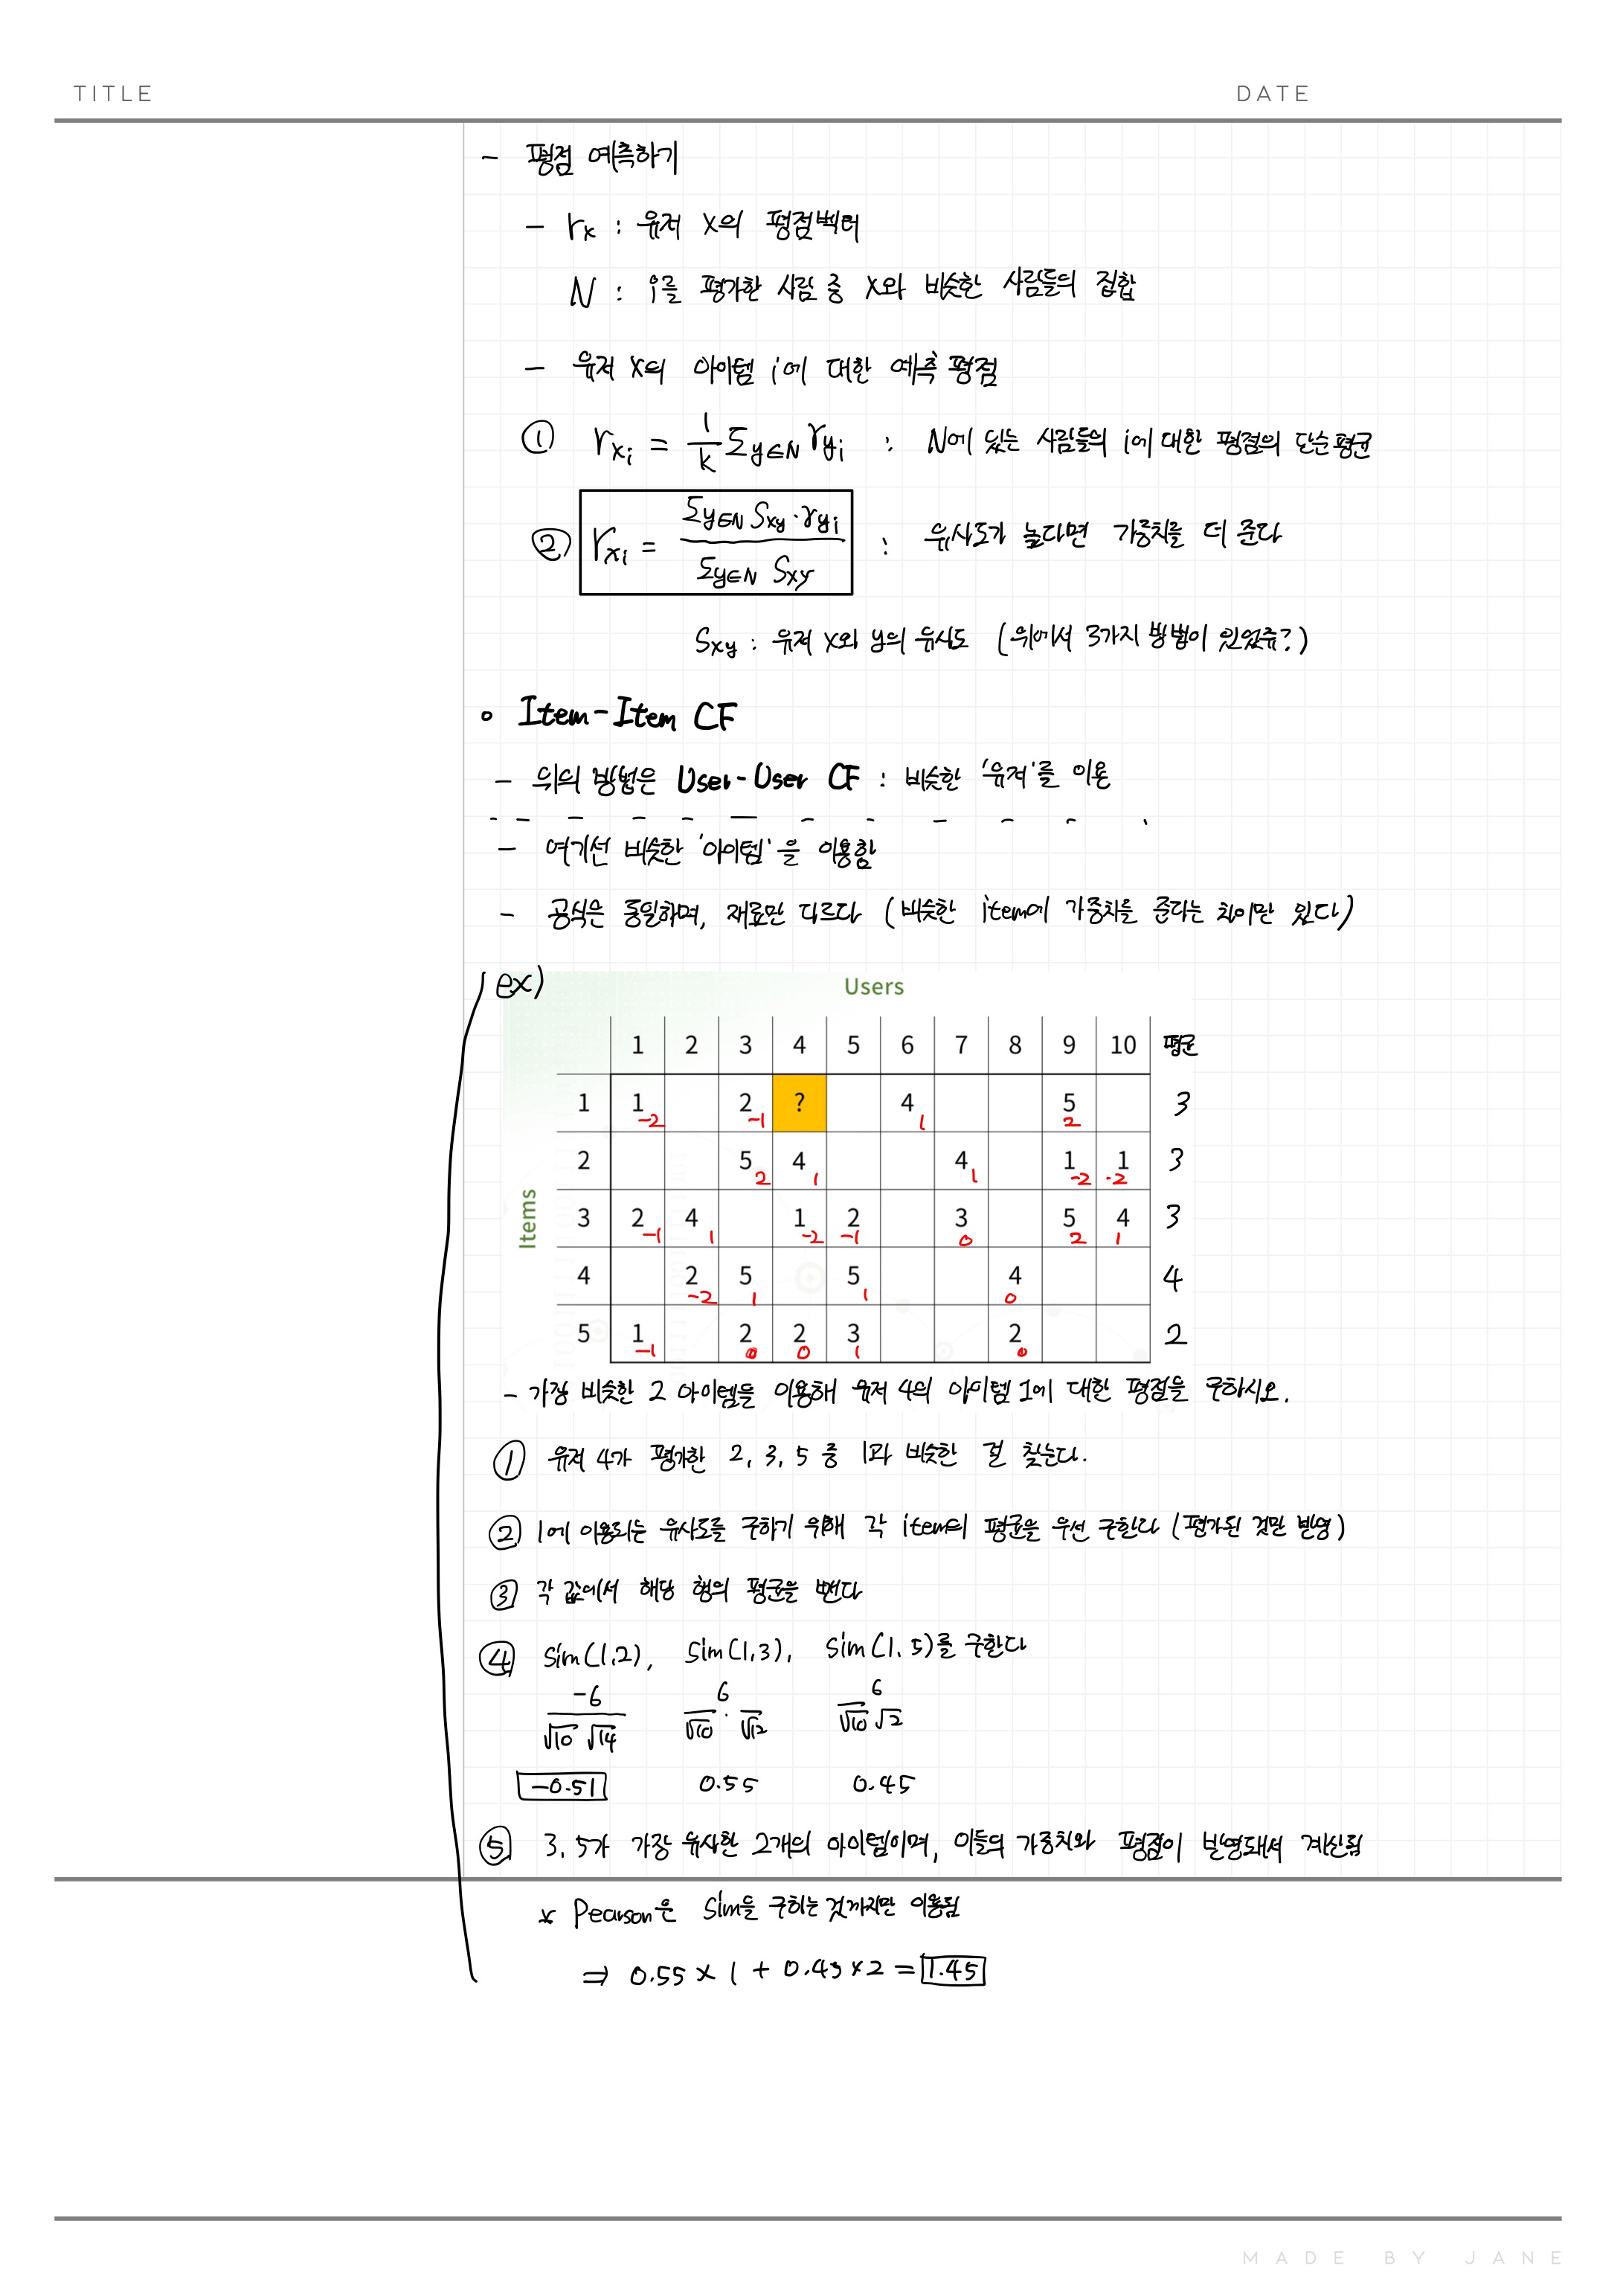 TITLE DATE
- 평점 예측하기
- rx : 유저 X의 평점벡터
N : i를 평가한 사람 중 X와 비슷한 사람들의 집합
- 유저 X의 아이템 i에 대한 예측 평점
① rxi = 1/k Σy∈N ryi : N에 있는 사람들의 i에 대한 평점의 단순평균
② rxi = Σy∈N Sxy·ryi / Σy∈N Sxy : 유사도가 높다면 가중치를 더 준다
Sxy : 유저 X와 y의 유사도 (위에서 3가지 방법이 있었쥬?)
∘ Item-Item CF
- 위의 방법은 User-User CF : 비슷한 '유저'를 이용
- 여기선 비슷한 '아이템'을 이용함
- 공식은 동일하며, 재료만 다르다 (비슷한 item에 가중치를 준다는 차이만 있다)
ex)
Users
1 2 3 4 5 6 7 8 9 10 평균
1 1 -2 2 -1 ? 4 1 5 2 3
2 5 2 4 1 4 1 1 -2 1 -2 3
Items
3 2 -1 4 1 1 -2 2 -1 3 0 5 2 4 1 3
4 2 -2 5 1 5 1 4 0 4
5 1 -1 2 0 2 0 3 1 2 0 2
- 가장 비슷한 2 아이템들을 이용해 유저 4의 아이템 1에 대한 평점을 구하시오.
① 유저 4가 평가한 2, 3, 5 중 1과 비슷한 걸 찾는다.
② 1에 이용되는 유사도를 구하기 위해 각 item의 평균을 우선 구한다 (평가된 것만 반영)
③ 각 값에서 해당 행의 평균을 뺀다
④ Sim(1,2), Sim(1,3), Sim(1,5)를 구한다
-6 / √10 √14 6 / √10 · √12 6 / √10 √2
-0.51 0.55 0.45
⑤ 3, 5가 가장 유사한 2개의 아이템이며, 이들의 가중치와 평점이 반영돼서 계산됨
* Pearson은 Sim을 구하는 것까지만 이용됨
⇒ 0.55 × 1 + 0.45 × 2 = 1.45
MADE BY JANE